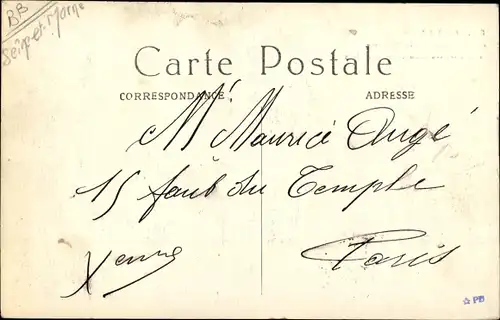 BB
Seine et Marne
Carte Postale
CORRESPONDANCE
ADRESSE
Mr Maurice Augé
15 faub du Temple
Paris
PB